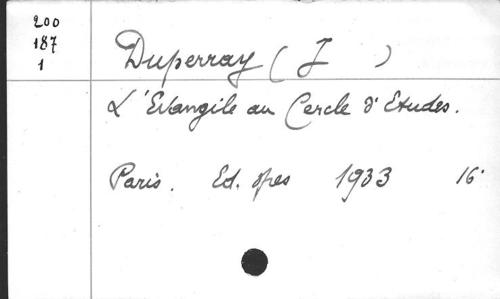 200
187
1
Duperray ( J )
L'Evangile au Cercle d'Etudes.
Paris. Ed. Spes 1933 16°